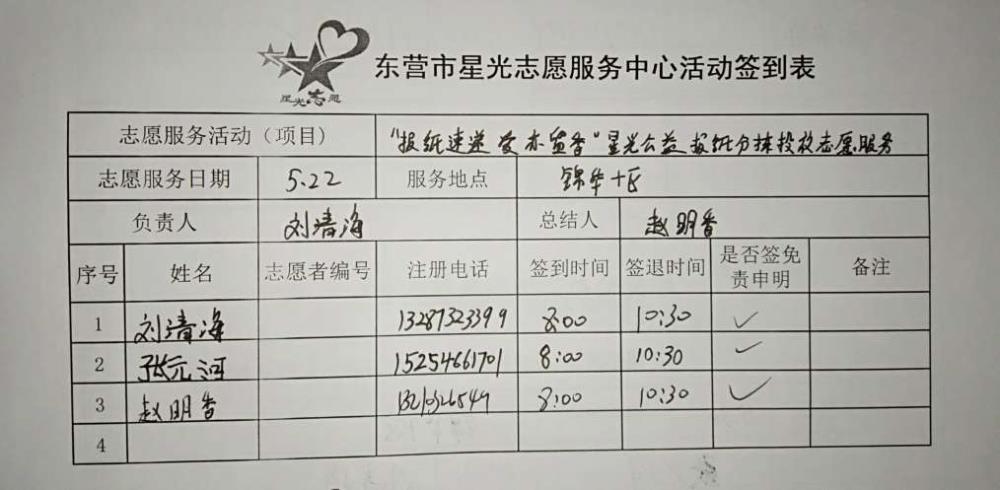 星光志愿
东营市星光志愿服务中心活动签到表
志愿服务活动（项目） "报纸速递 爱亦留香"星光公益报纸分拣投放志愿服务
志愿服务日期 5.22 服务地点 锦华十区
负责人 刘清海 总结人 赵明香
序号 姓名 志愿者编号 注册电话 签到时间 签退时间 是否签免责申明 备注
1 刘清海 13287323399 8:00 10:30 ✓
2 张元河 15254661701 8:00 10:30 ✓
3 赵明香 8:00 10:30 ✓
4